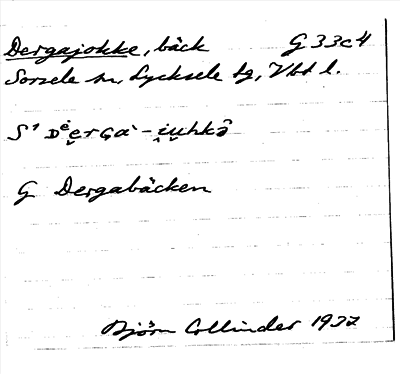 Dergajokke, bäck G 33c4
Sorsele sn, Lycksele tg, Vbt l.
G Dergabäcken
Björn Collinder 1937